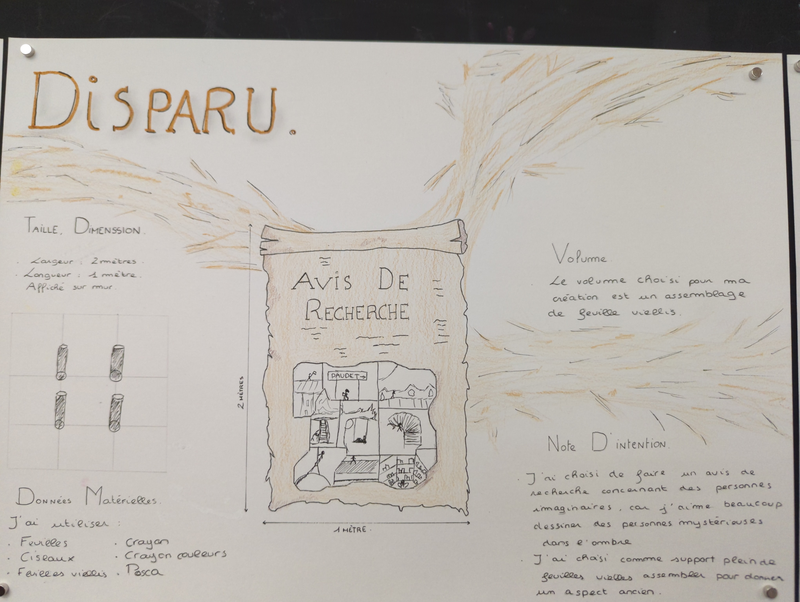 DiSPARU.
TAILLE, DIMENSSION.
. Largeur : 2 mètres.
. Longueur : 1 mètre.
Affiché sur mur.
AVIS DE
RECHERCHE
DAUDET→
2 MÈTRES
1 MÈTRE
Volume.
. Le volume choisi pour ma
création est un assemblage
de feuille vieillis.
NOTE D'INTENTION.
. J'ai choisi de faire un avis de
recherche concernant des personnes
imaginaires, car j'aime beaucoup
dessiner des personnes mystérieuses
dans l'ombre
. J'ai choisi comme support plein de
feuilles vieilles assembler pour donner
un aspect ancien.
DONNÉES MATÉRIELLES.
J'ai utiliser :
. Feuilles
. Ciseaux
. Feuilles vieillis
. Crayon
. Crayon couleurs
. Posca